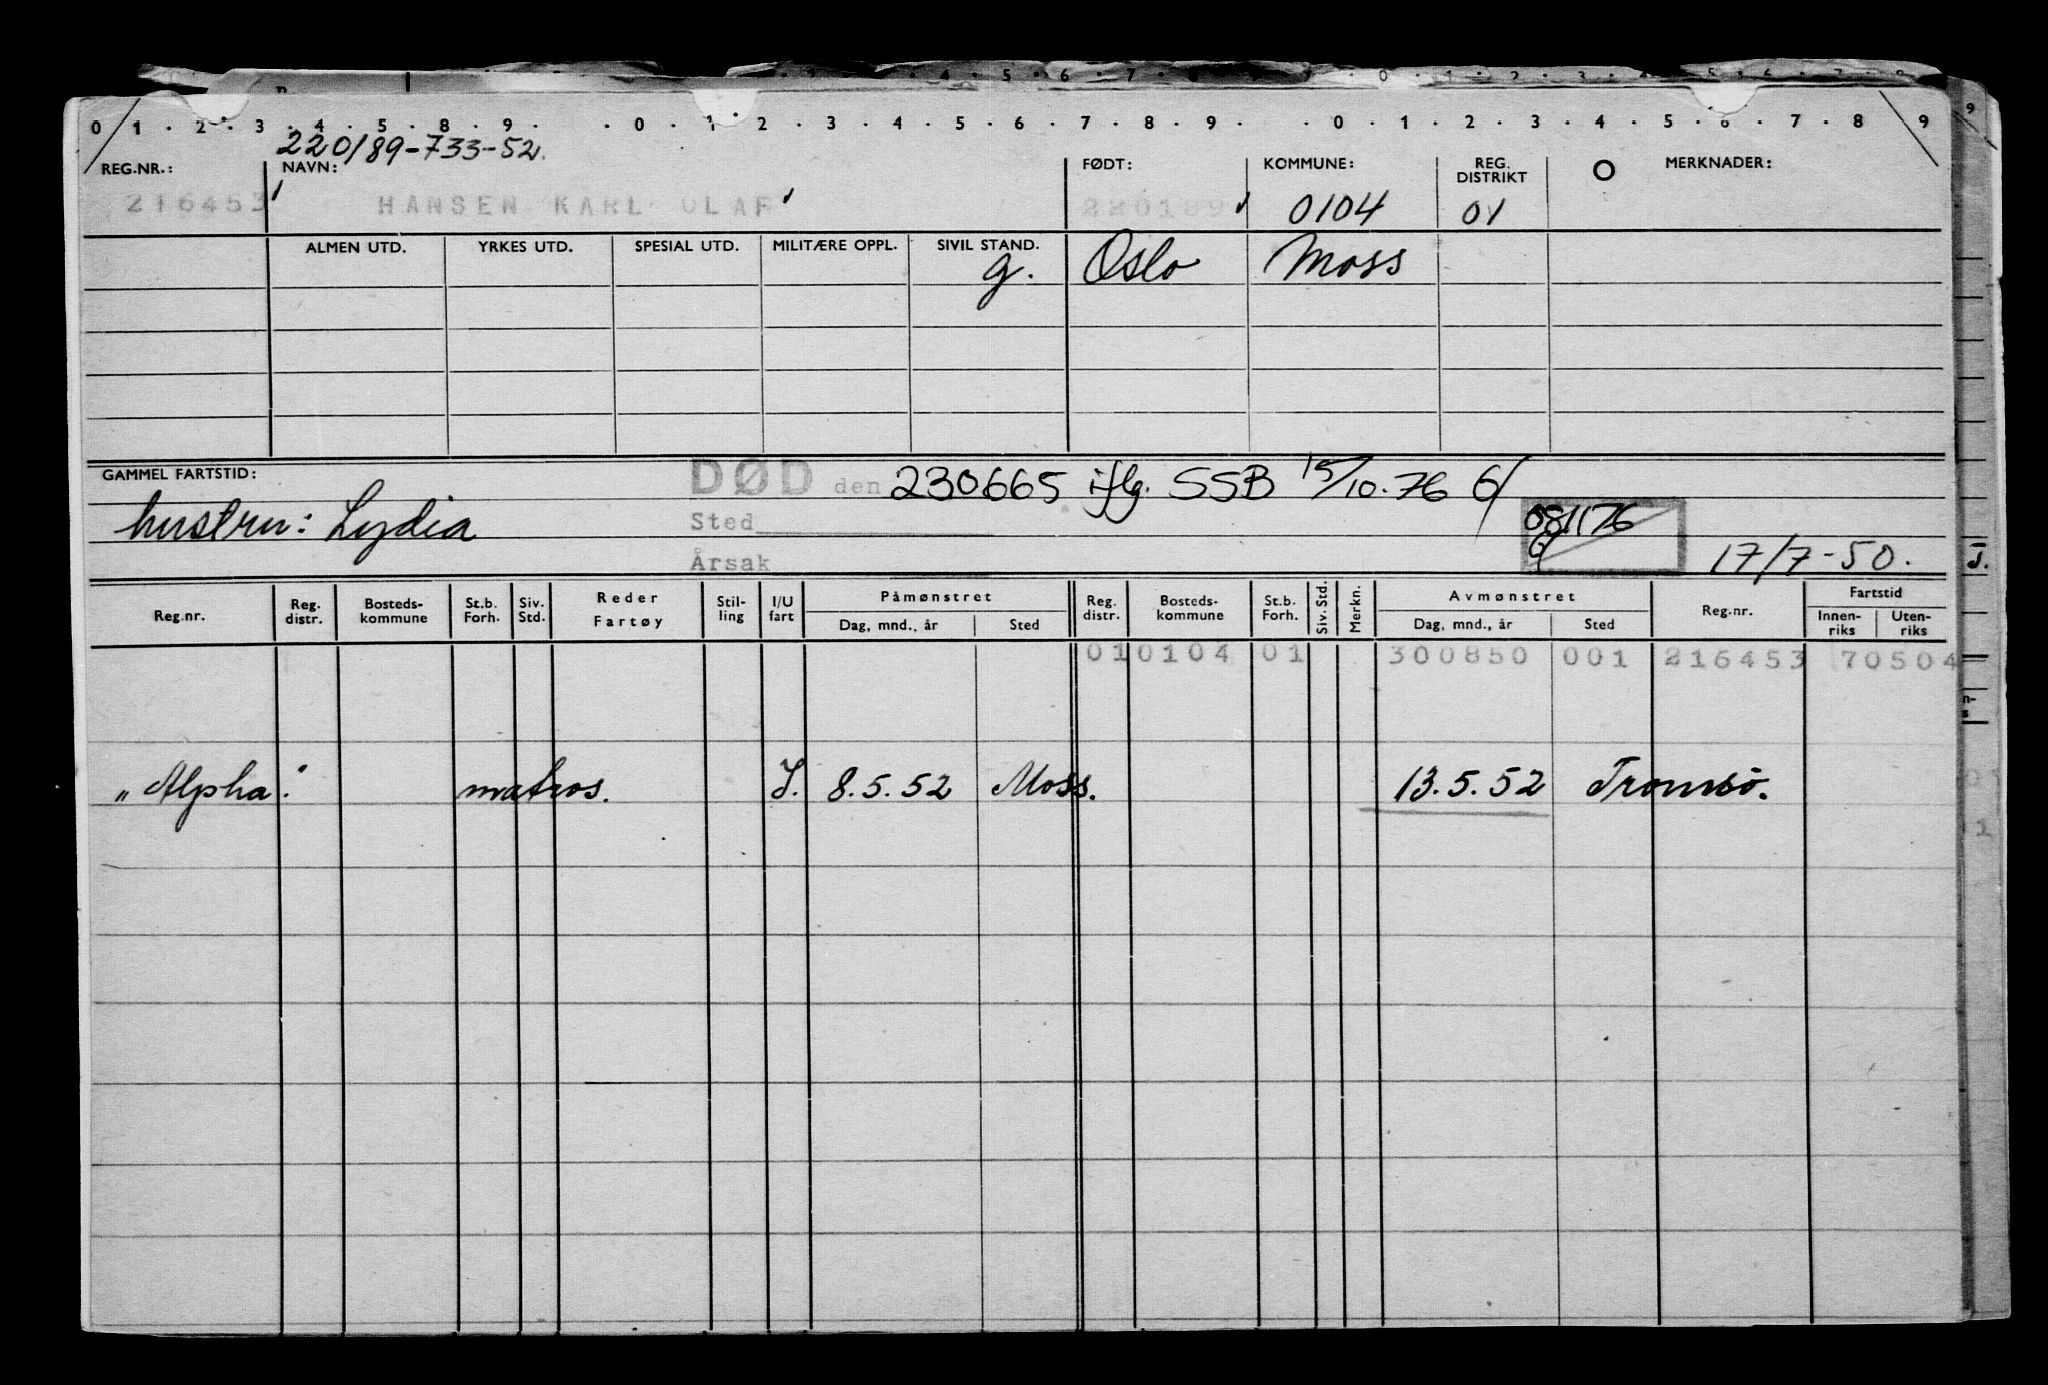 0 1 . 2 . 3 . 4 . 5 . 8 . 9 . . 0 . 1 . 2 . 3 . 4 . 5 . 6 . 7 . 8 . 9 . . 0 . 1 . 2 . 3 . 4 . 5 . 6 . 7 . 8 9
220189-733-52.
REG.NR.: NAVN: FØDT: KOMMUNE: REG. DISTRIKT MERKNADER:
216453 HANSEN KARL OLAF 220189 0104 01
ALMEN UTD. YRKES UTD. SPESIAL UTD. MILITÆRE OPPL. SIVIL STAND.
g. Oslo Moss
GAMMEL FARTSTID: DØD den 230665 iflg. SSB 15/10.76
hustru: Lydia Sted 081176
Årsak 17/7-50.
Reg.nr. Reg. distr. Bosteds-kommune St.b. Forh. Siv. Std. Reder Fartøy Stil-ling I/U fart Påmønstret Dag, mnd., år Sted Reg. distr. Bosteds-kommune St.b. Forh. Siv. Std. Merkn. Avmønstret Dag, mnd., år Sted Reg.nr. Fartstid Innen-riks Uten-riks
01 0104 01 300850 001 216453 70504
"Alpha". matros. I. 8.5.52 Moss. 13.5.52 Tromsö.